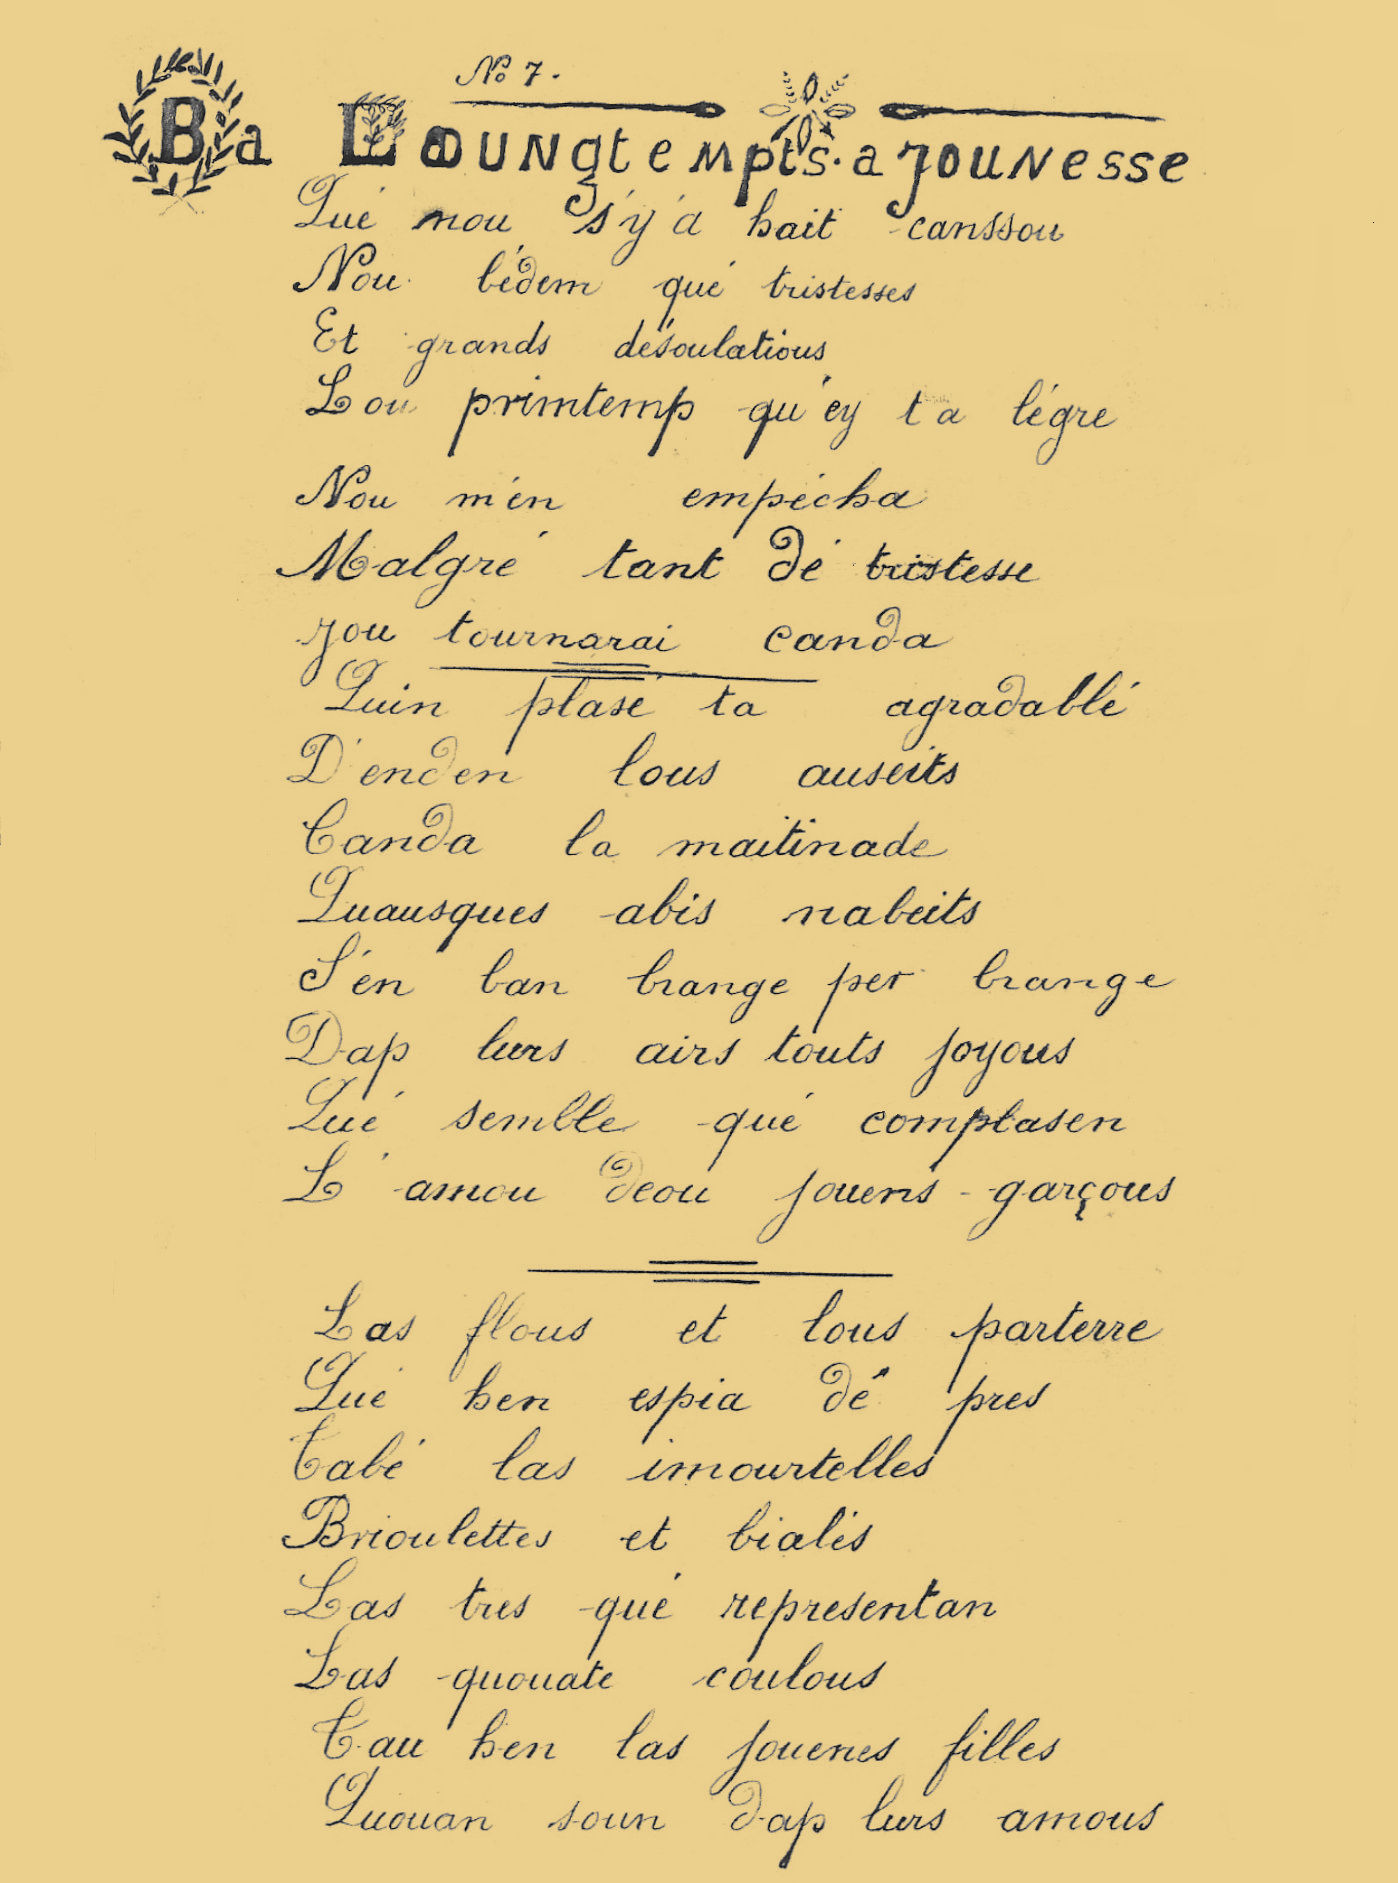 No 7.
Ba Loungtempts. a jounesse
Qué nou s'y'a hait canssou
Nou bédem qué tristesses
Et grands désoulatious
Lou primtemp qu'ey ta légre
Nou m'én empécha
Malgré tant dé tristesse
jou tournarai canda
Quin plasé ta agradablé
D'enden lous auseits
Canda la maitinade
Quausques abis nabeits
S'én ban brange per brange
Dap lurs airs touts joyous
Qué semble qué complasen
L'amou deou jouens garçous
Las flous et lous parterre
Qué hen espia dé pres
Tabé las imourtelles
Brioulettes et bialés
Las tres qué representan
Las quouate coulous
Tau hen las jouenes filles
Quouan soun dap lurs amous